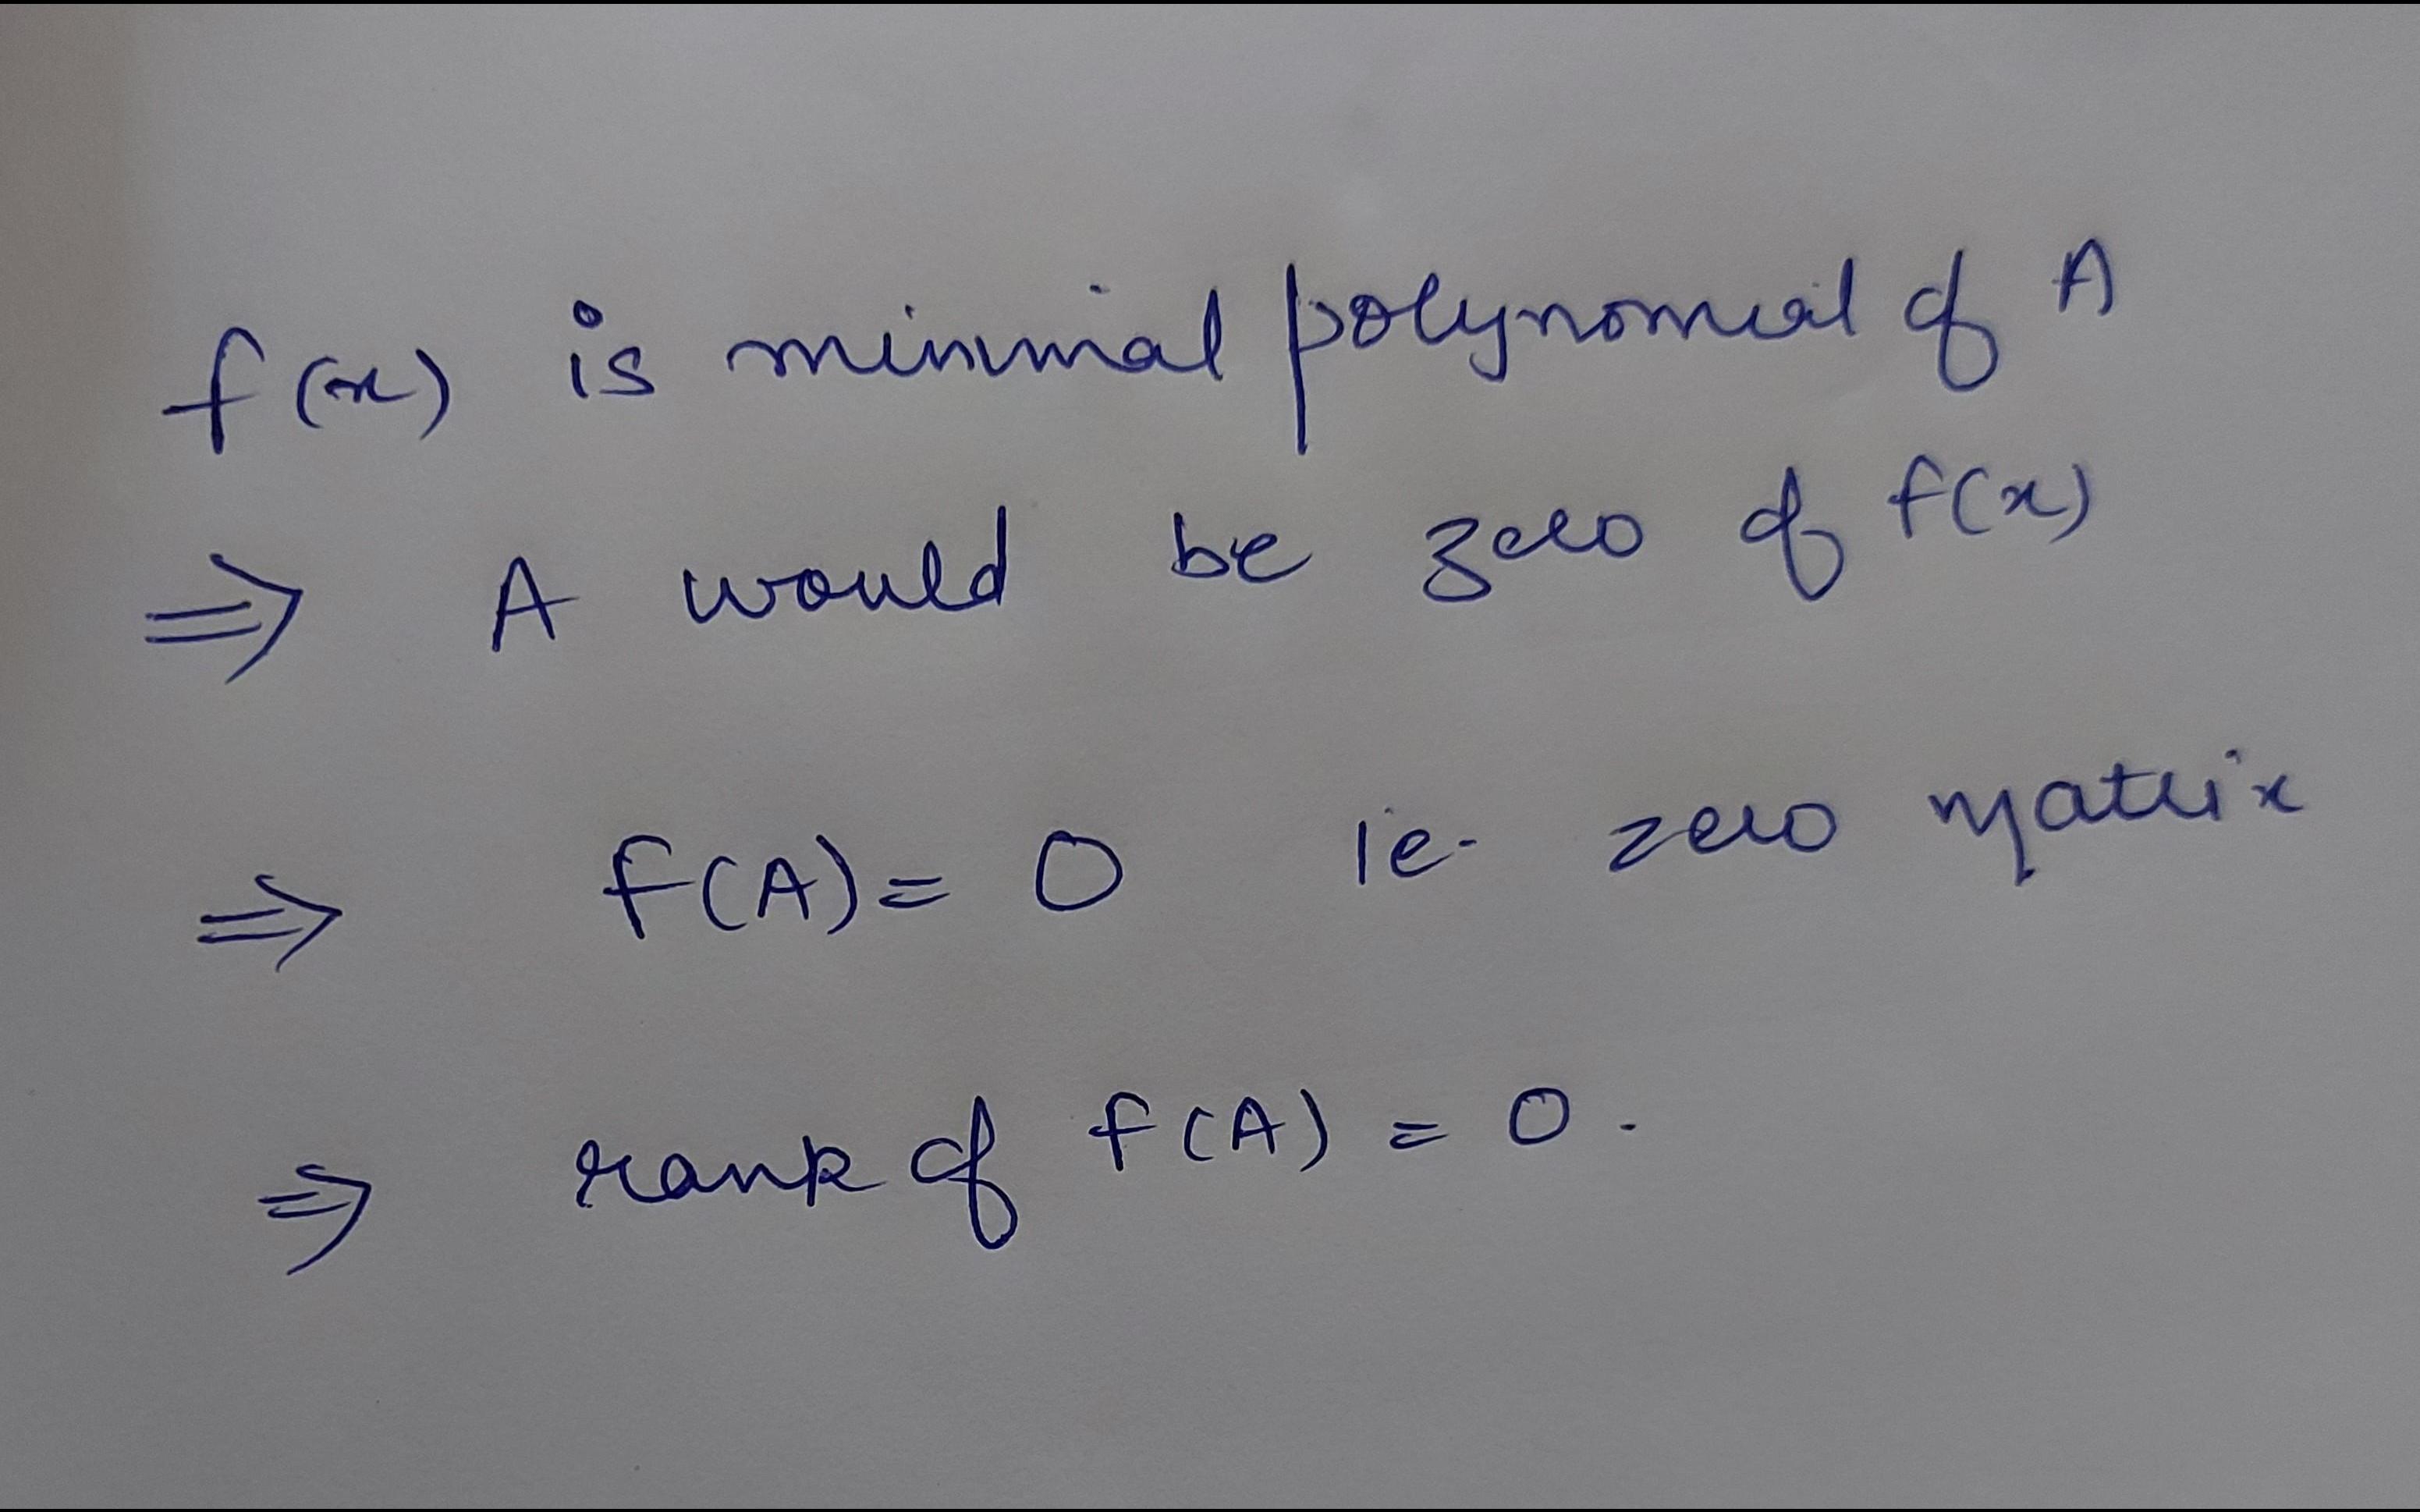 f(x) is minimal polynomial of A
⇒ A would be zero of f(x)
⇒ f(A) = 0 ie. zero matrix
⇒ rank of f(A) = 0.